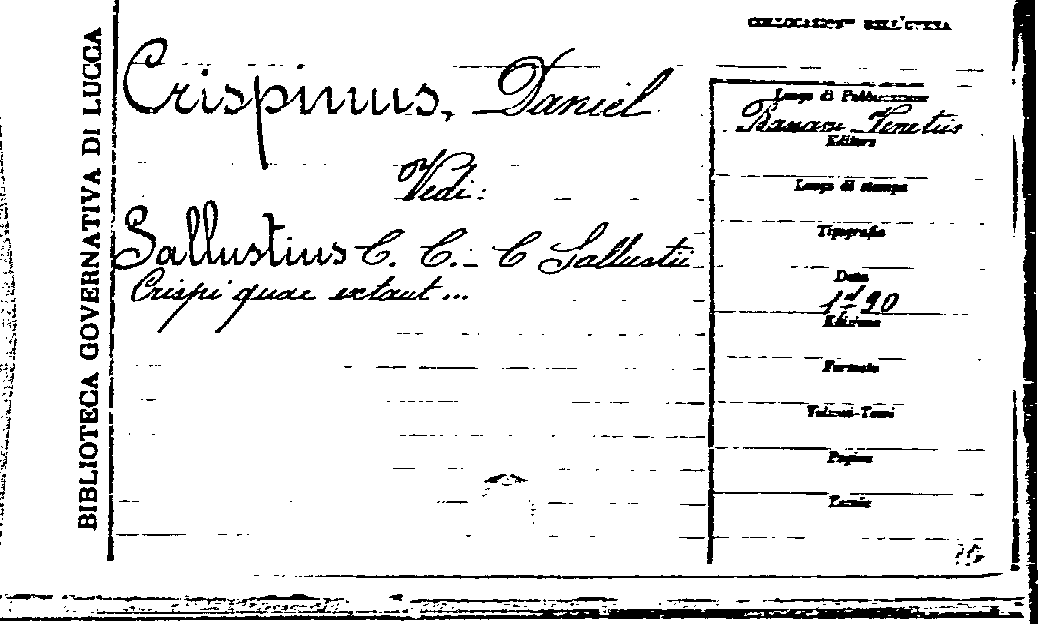 BIBLIOTECA GOVERNATIVA DI LUCCA
COLLOCAZIONE DELL'OPERA
Crispinus, Daniel
Vedi:
Sallustius C. C. - C Sallustii
Crispi quae extant...
Luogo di Pubblicazione
Venetiis
Editore
Luogo di stampa
Tipografia
Data
Edizione
Formato
Volumi-Tomi
Pagine